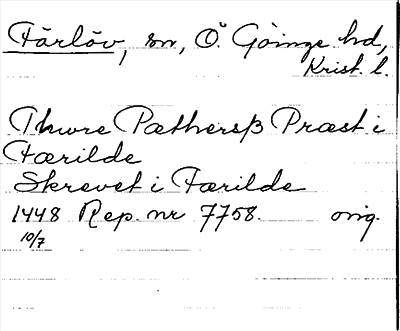 Färlöv, sn, Ö. Göinge hd,
Krist. l.
Thure Pæthersß Præst i
Færilde
Skrevet i Færilde
1448 Rep. nr 7758. orig.
10/7